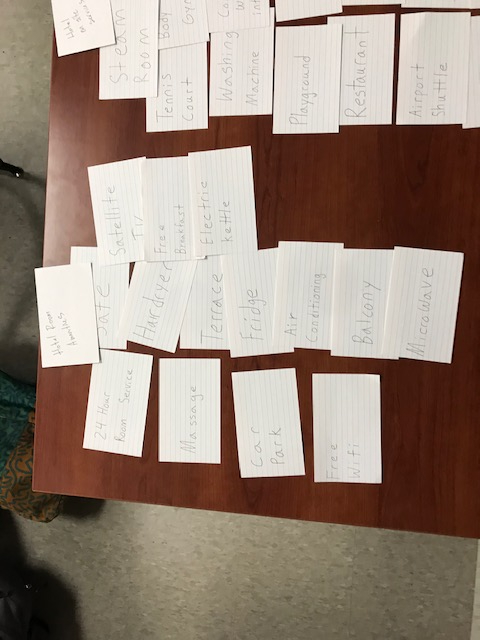 Steam
Room
Body
Gym
Tennis
Court
Washing
Machine
Playground
Restaurant
Airport
Shuttle
Satellite
TV
Free
Breakfast
Electric
kettle
Hotel Room
Amenities
Safe
Hairdryer
Terrace
Fridge
Air
Conditioning
Balcony
Microwave
24 Hour
Room Service
Massage
Car
Park
Free
Wifi